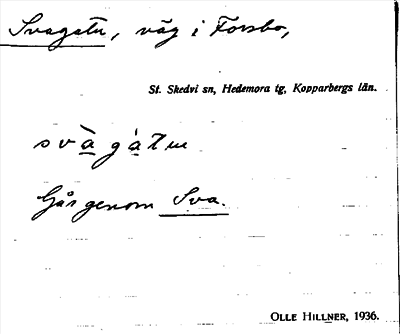 Svagatu, väg i Forsbo,
St. Skedvi sn, Hedemora tg, Kopparbergs län.
svàgàtu
Går genom Sva.
OLLE HILLNER, 1936.